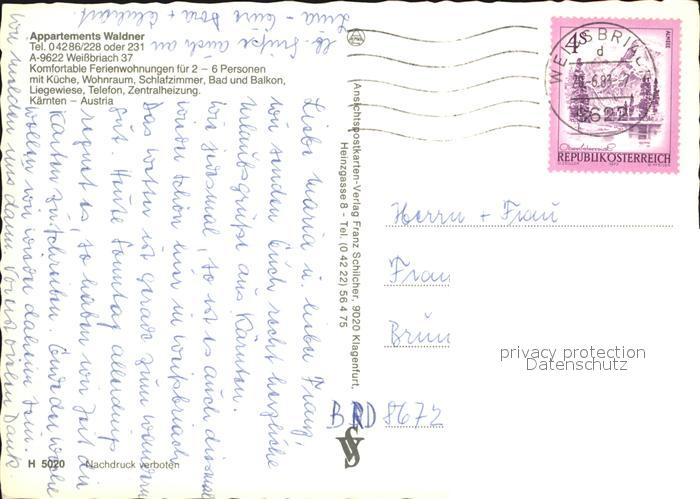 Appartements Waldner
Tel. 04286/228 oder 231
A-9622 Weißbriach 37
Komfortable Ferienwohnungen für 2 – 6 Personen
mit Küche, Wohnraum, Schlafzimmer, Bad und Balkon,
Liegewiese, Telefon, Zentralheizung.
Kärnten – Austria
Liebe Maria u. lieber Franz,
wir senden Euch recht herzliche
Urlaubsgrüße aus Kärnten.
Wie jedesmal, so ist es auch diesmal
wieder schön hier in Weißbriach
Das Wetter ist gerade zum wandern
gut. Heute Sonntag allerdings
regnet es, so haben wir Zeit die
Karten zu schreiben. Ende der Woche
wollen wir wieder daheim sein.
wir und dann
lb. Grüße auch an
Eure
H 5020 Nachdruck verboten
Ansichtspostkarten-Verlag Franz Schilcher, 9020 Klagenfurt,
Heinzgasse 8 - Tel. (0 42 22) 56 4 75
4S
ALMSEE
Oberösterreich
REPUBLIK ÖSTERREICH
WEISSBRIACH
d
9622
Herrn + Frau
Frau
Brun
privacy protection
Datenschutz
BRD 8672